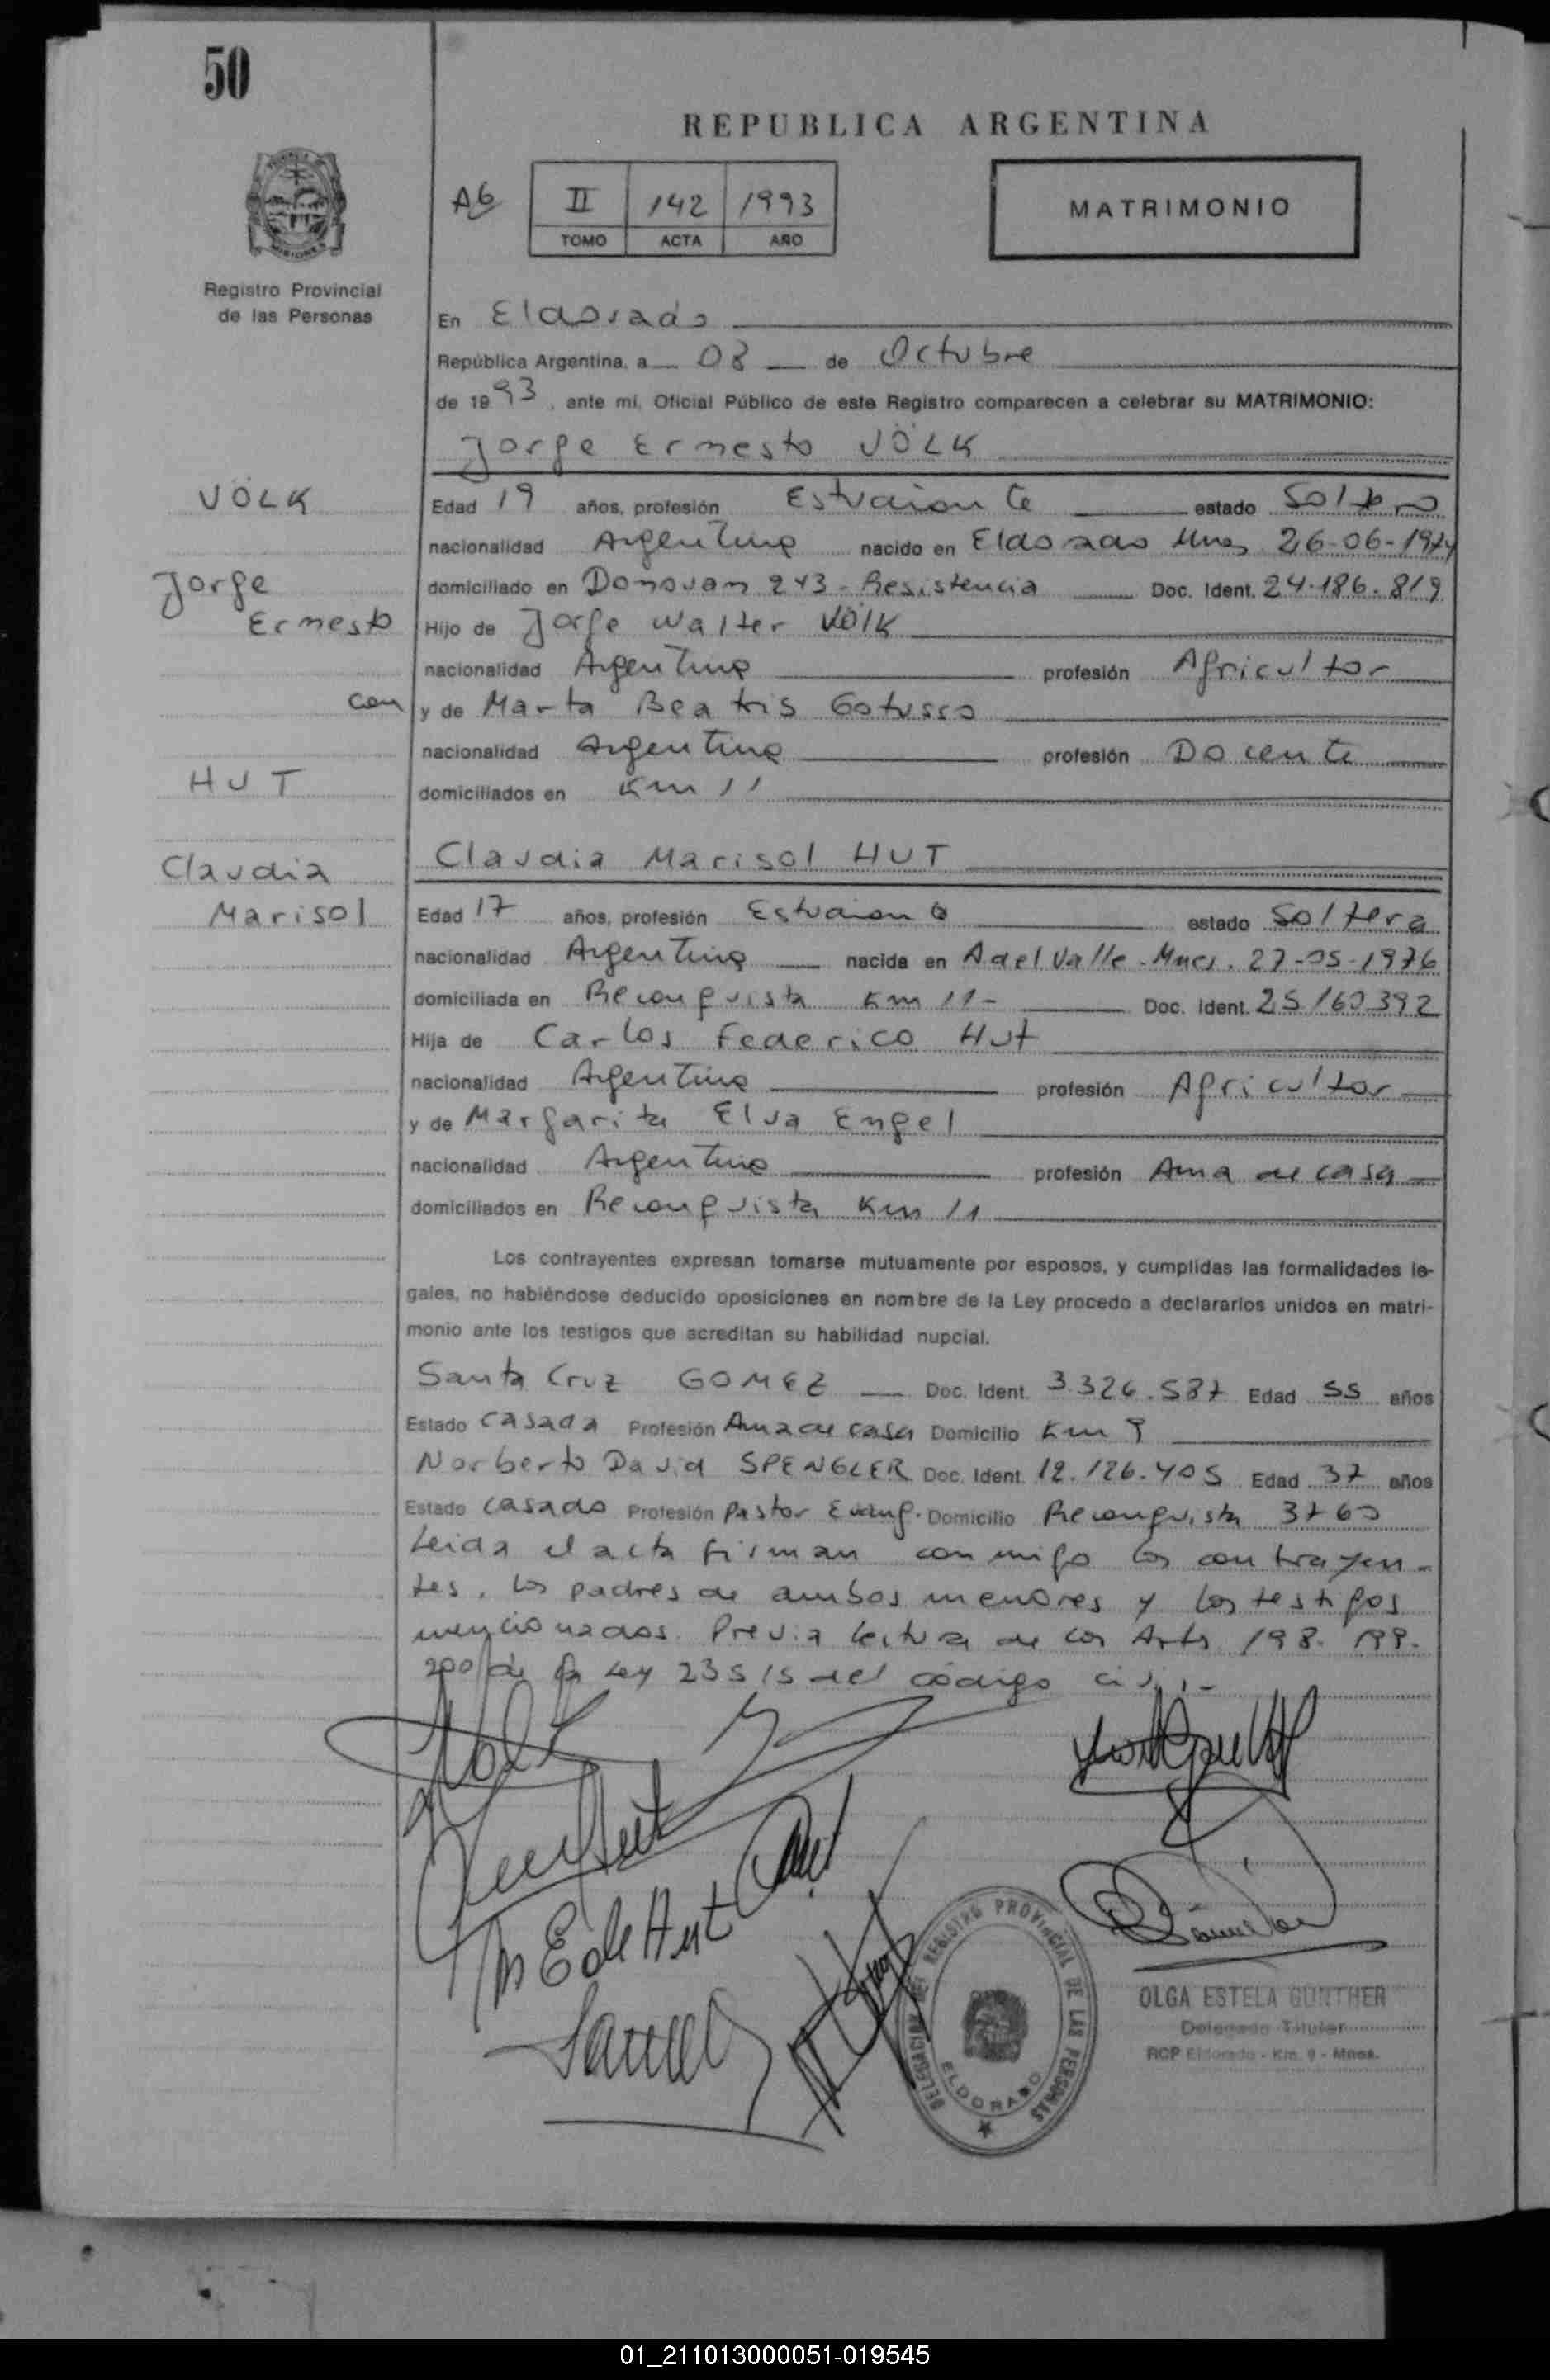 50
REPUBLICA ARGENTINA
A6 II 142 1993
TOMO ACTA AÑO
MATRIMONIO
Registro Provincial
de las Personas
En Eldorado
República Argentina, a 08 de Octubre
de 1993, ante mí, Oficial Público de este Registro comparecen a celebrar su MATRIMONIO:
Jorge Ernesto VÖLK
VÖLK
Edad 19 años, profesión Estudiante estado Soltero
nacionalidad Argentina nacido en Eldorado Mnes 26-06-1974
Jorge
domiciliado en Donovan 243 - Resistencia Doc. Ident. 24.186.819
Ernesto
Hijo de Jorge Walter Völk
nacionalidad Argentina profesión Agricultor
con
y de Marta Beatris Gotusso
nacionalidad Argentina profesión Docente
HUT
domiciliados en Km 11
Claudia Marisol HUT
Claudia
Marisol
Edad 17 años, profesión Estudiante estado Soltera
nacionalidad Argentina nacida en A del Valle - Mnes. 27-05-1976
domiciliada en Reconquista Km 11- Doc. Ident. 25160392
Hija de Carlos Federico Hut
nacionalidad Argentina profesión Agricultor
y de Margarita Elva Engel
nacionalidad Argentina profesión Ama de casa
domiciliados en Reconquista Km 11
Los contrayentes expresan tomarse mutuamente por esposos, y cumplidas las formalidades le-
gales, no habiéndose deducido oposiciones en nombre de la Ley procedo a declararlos unidos en matri-
monio ante los testigos que acreditan su habilidad nupcial.
Santa Cruz GOMEZ Doc. Ident. 3.326.587 Edad 55 años
Estado Casada Profesión Ama de casa Domicilio Km 9
Norberto David SPENGLER Doc. Ident. 12.126.405 Edad 37 años
Estado Casado Profesión Pastor Evang. Domicilio Reconquista 3760
Leida el acta firman conmigo los contrayen-
tes, los padres de ambos menores y los testigos
mencionados. Previa lectura de los Arts 198. 199.
200 de la Ley 23515 del código civil-
M E de Hut
DELEGACION DEL REGISTRO PROVINCIAL DE LAS PERSONAS
ELDORADO
OLGA ESTELA GUNTHER
Delegada Titular
RCP Eldorado - Km. 9 - Mnes.
01_211013000051-019545